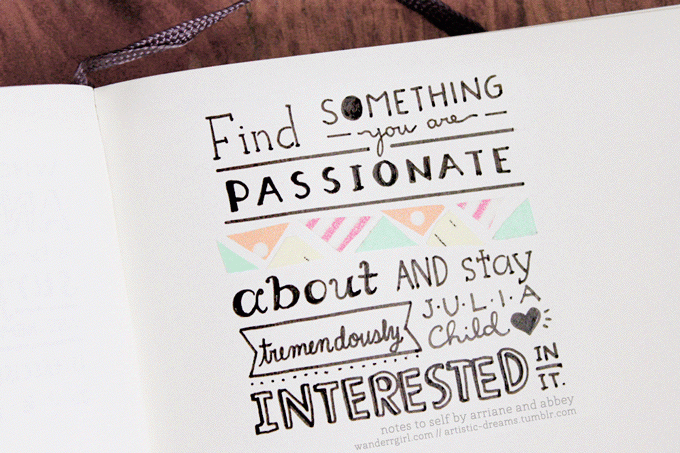 Find SOMETHING
you are
PASSIONATE
about AND stay
tremendously
J·U·L·I·A
Child
INTERESTED IN
IT.
notes to self by arriane and abbey
wanderrgirl.com // artistic-dreams.tumblr.com